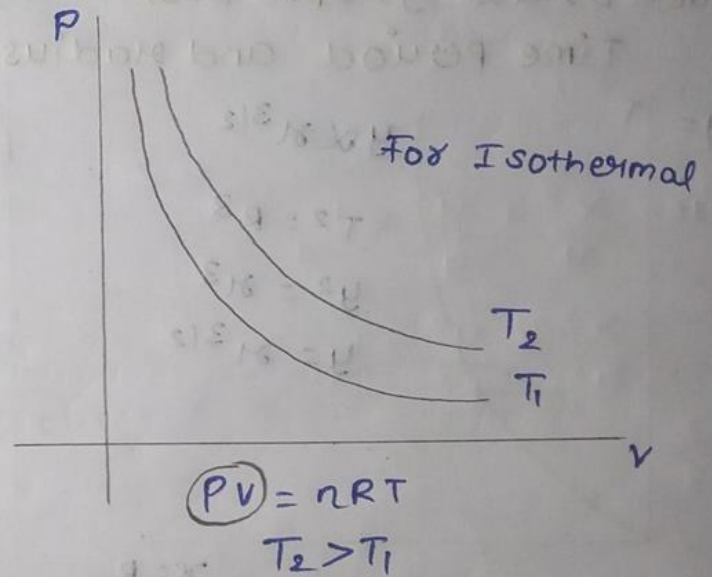 P
For Isothermal
T₂
T₁
V
PV = nRT
T₂ > T₁